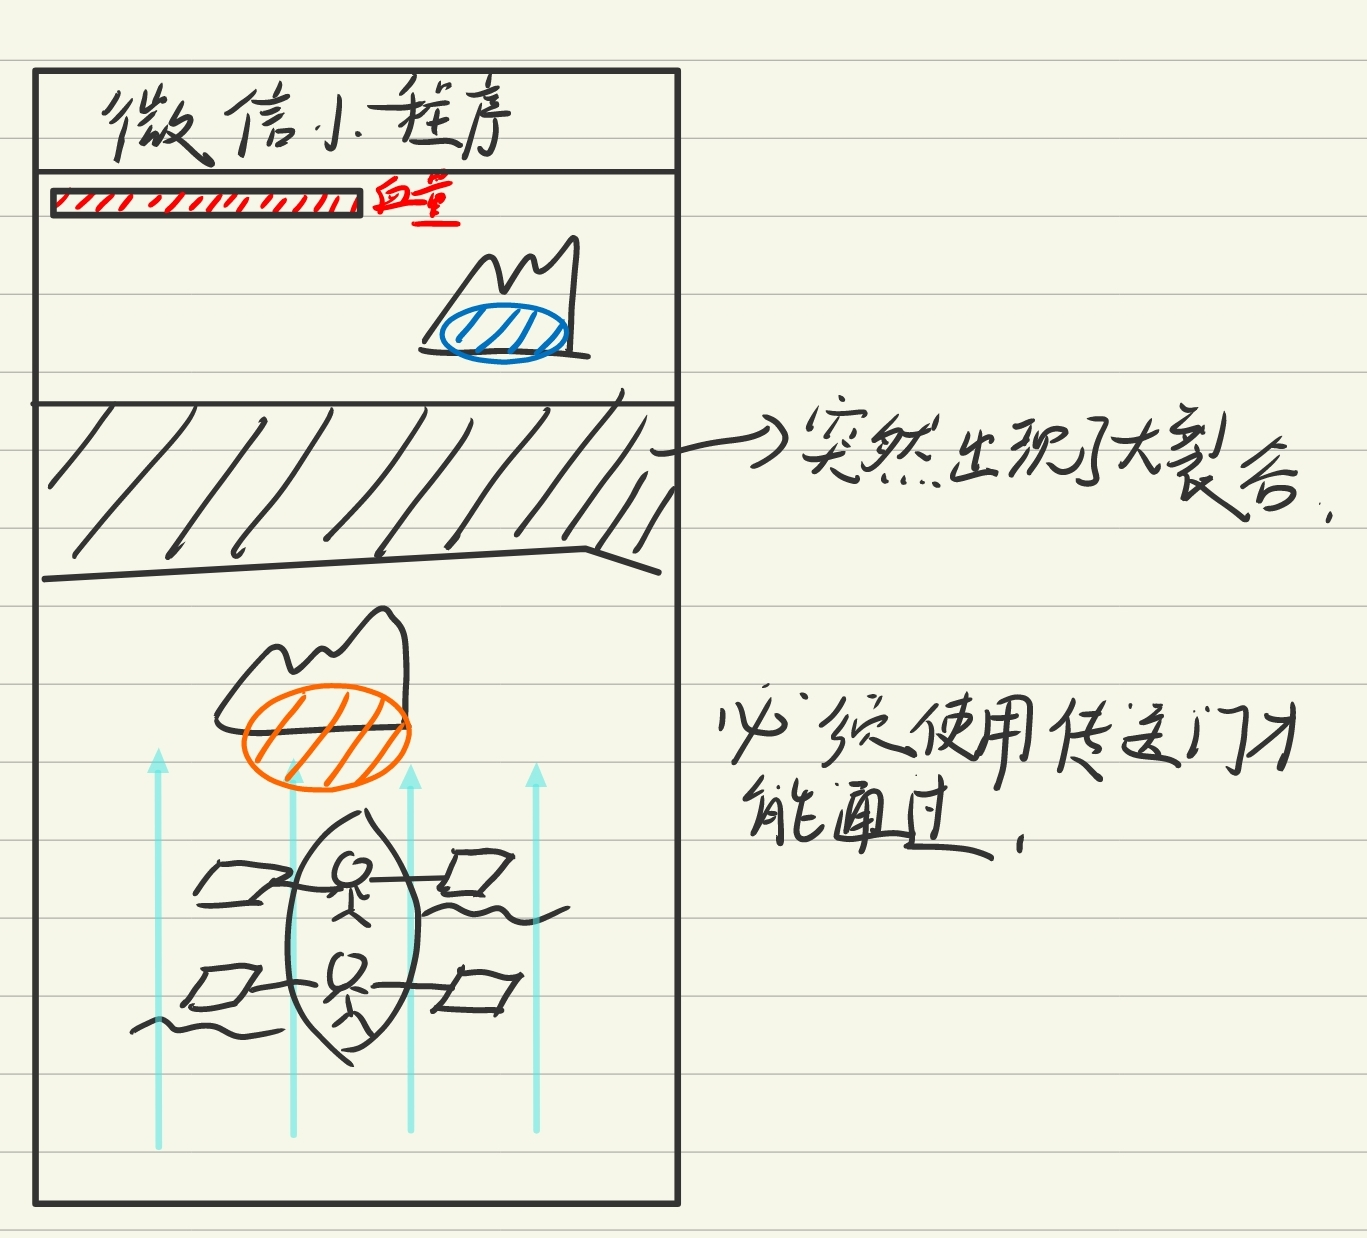 微信小程序
血量
突然出现了大裂谷.
必须使用传送门才
能通过.